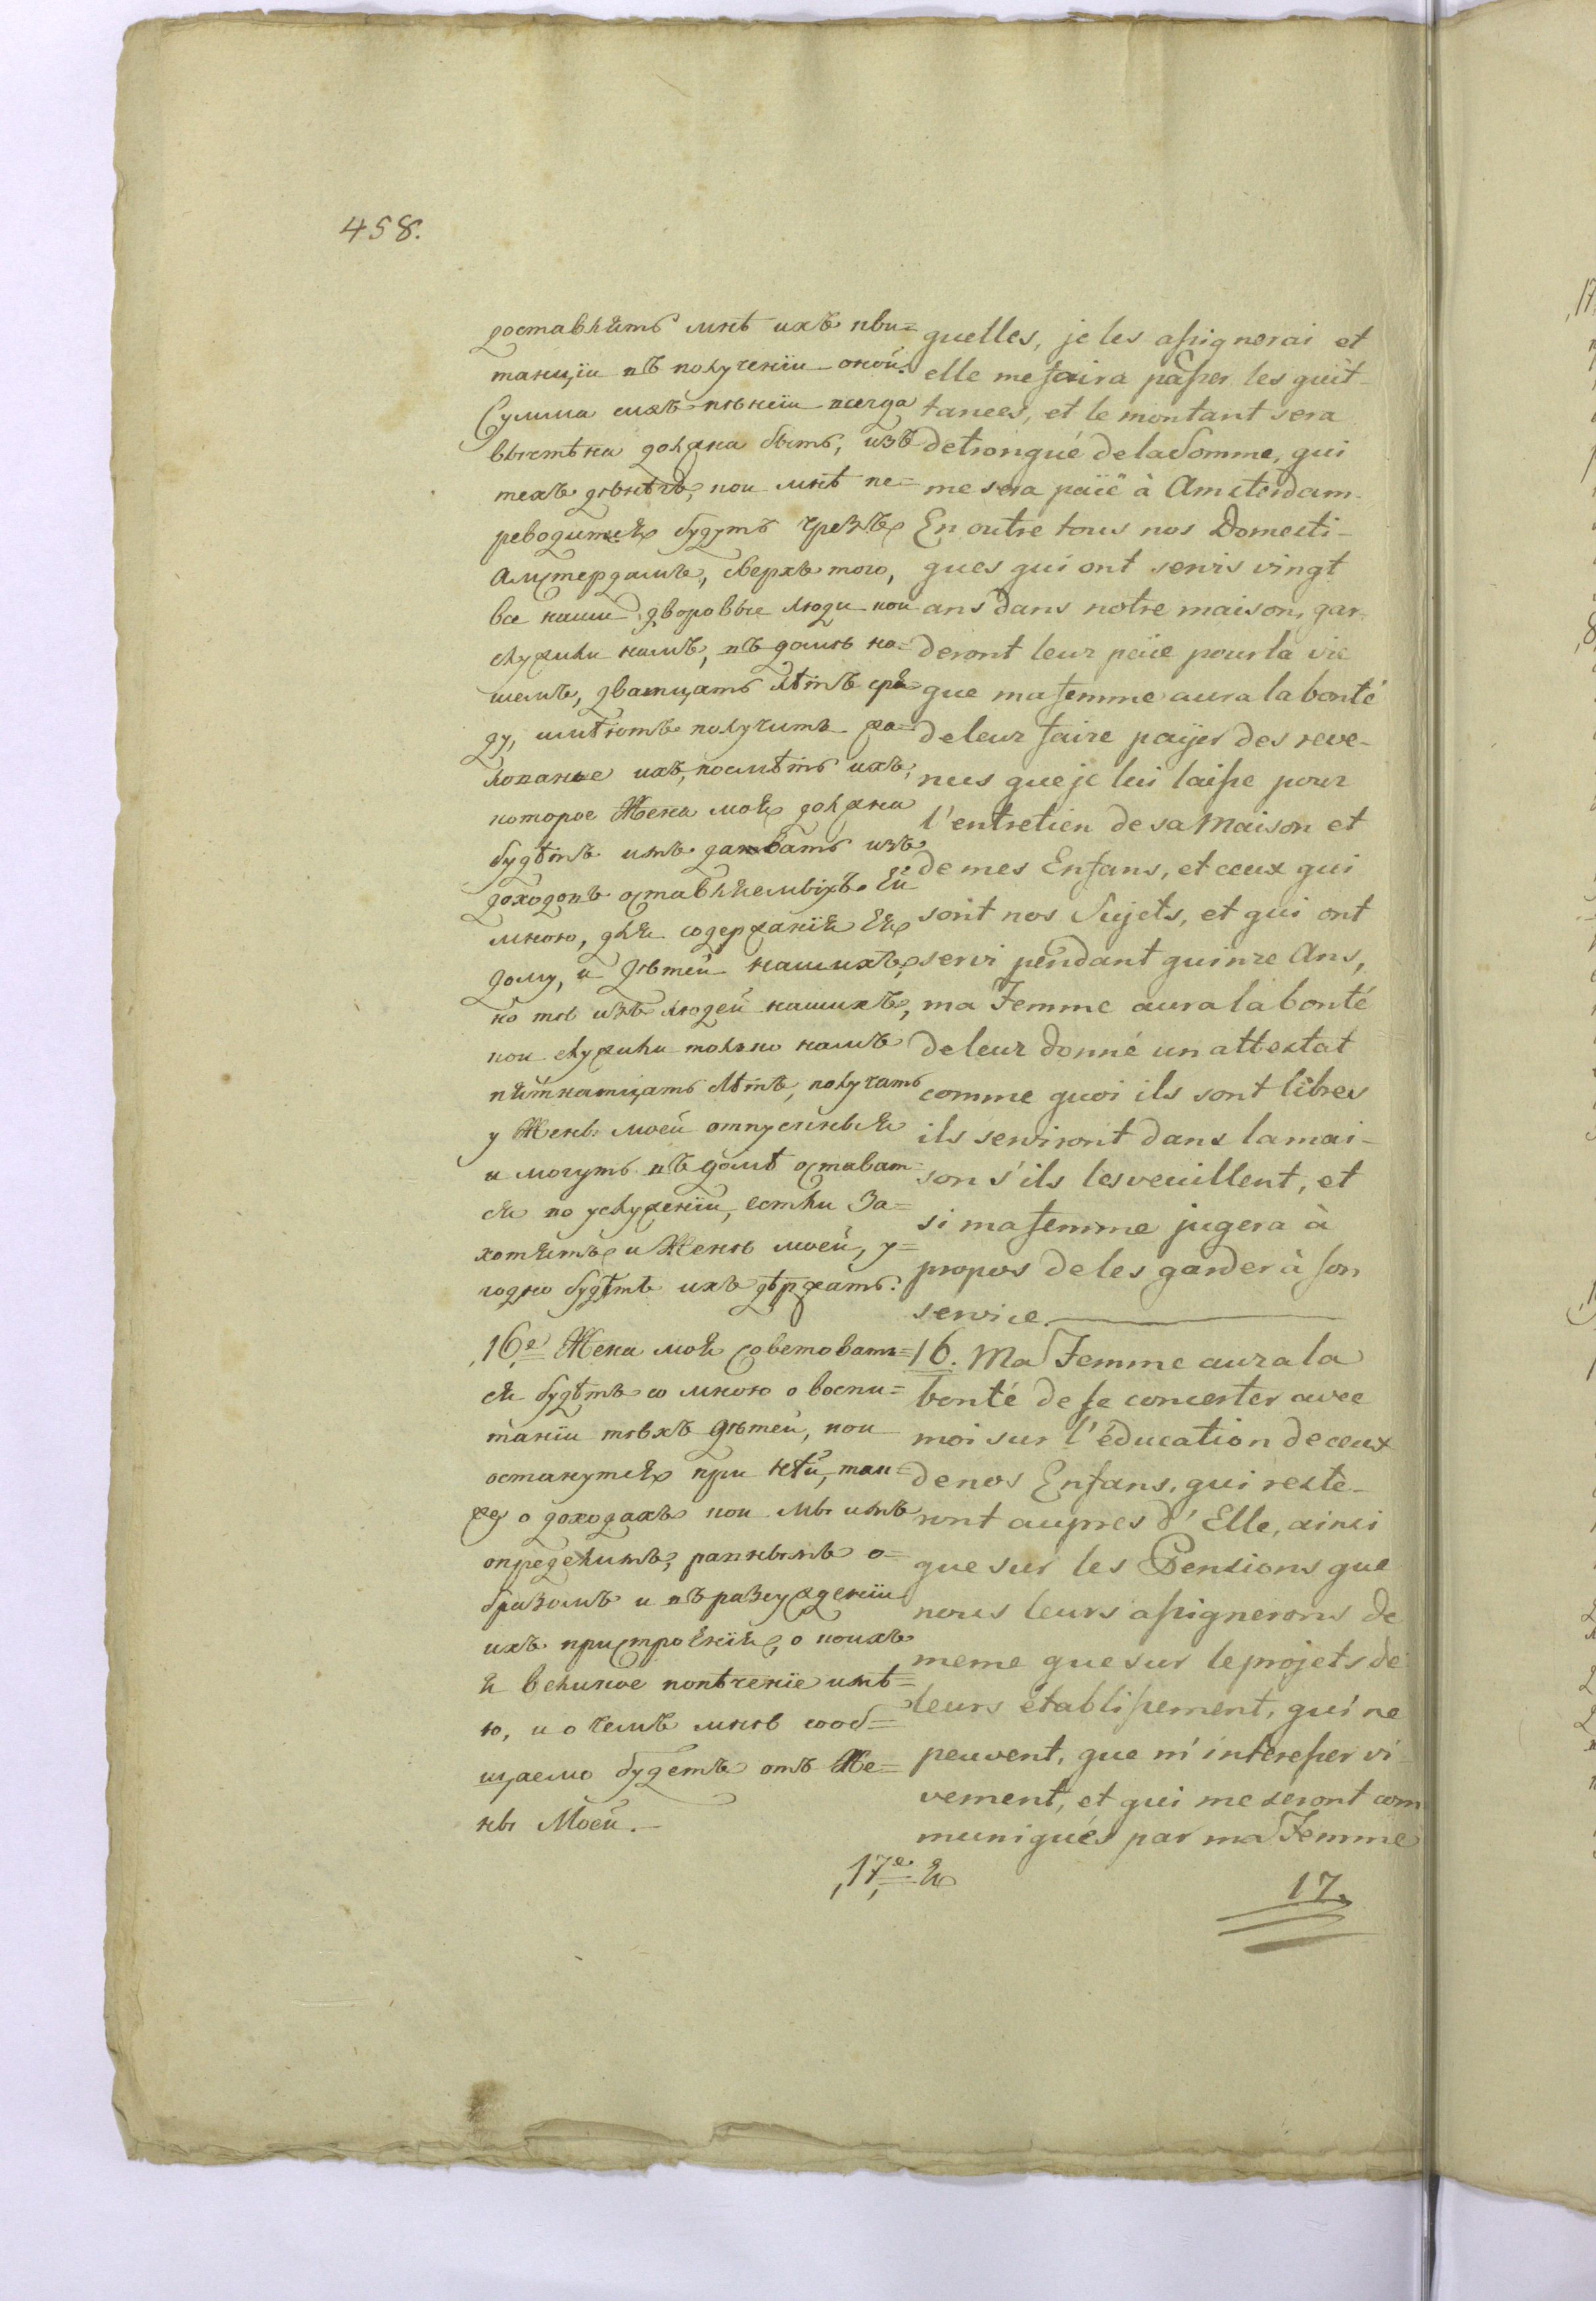 458.
доставлять мнѣ ихъ кви=
танціи въ полученіи оной.
Сумма сихъ пѣнсіи всегда
вычтѣна должна быть, изъ
техъ дѣнѣгъ, кои мнѣ пе=
реводится будутъ чрезъ
Амстердамъ, сверхъ того,
все наши дворовые люди кои
служили намъ, въ домѣ на=
шемъ, дватцать лѣтъ сря=
ду, имѣютъ получить жа=
лованье ихъ, посмѣть ихъ,
которое Жена моя должна
будѣтъ имъ давать изъ
доходовъ оставляемыхъ ей
мною, для содержанія Ея
дому, и дѣтей нашихъ,
но тѣ изъ людей нашихъ,
кои служили только намъ
пятнатцать лѣтъ, получать
у Жены моей отпускныя
и могутъ въ домѣ остават=
ся по услуженіи, естли За=
хотятъ и Женѣ моей, у=
годно будѣтъ ихъ дѣржать.
16е Жена моя советовать=
ся будѣтъ со мною о воспи=
таніи тѣхъ дѣтей, кои
останутся при нѣй, так=
же о доходахъ кои мы имъ
определимъ, равнымъ о=
бразомъ и въ разсужденіи
ихъ пристроенія, о коихъ
я великое попѣченіе имѣ=
ю, и о чемъ мнѣ сооб=
щаемо будетъ отъ Же=
ны Моей.
17е Я
quelles, je les assignerai et
elle me faira passer les quit-
tances, et le montant sera
detronqué de la Somme, qui
me sera païë à Amsterdam.
En outre tous nos Domesti-
ques qui ont servis vingt
ans dans notre maison, gar-
deront leur païe pour la vie
que ma femme aura la bonté
de leur faire paÿer des reve-
nus que je lui laisse pour
l'entretien de sa Maison et
de mes Enfans, et ceux qui
sont nos Sujets, et qui ont
servi pendant quinze Ans,
ma Femme aura la bonté
de leur donné un attestat
comme quoi ils sont libres
ils serviront dans la mai-
son s'ils les veuillent, et
si ma femme jugera à
propos de les garder à son
service.
16. Ma Femme aura la
bonté de se concerter avec
moi sur l'éducation de ceux
de nos Enfans, qui reste-
ront aupres d'Elle, ainsi
que sur les Pensions que
nous leurs assignerons de
meme que sur le projets de
leurs établissement, qui ne
peuvent, que m'interesser vi-
vement, et qui me seront com
muniqués par ma Femme
17.